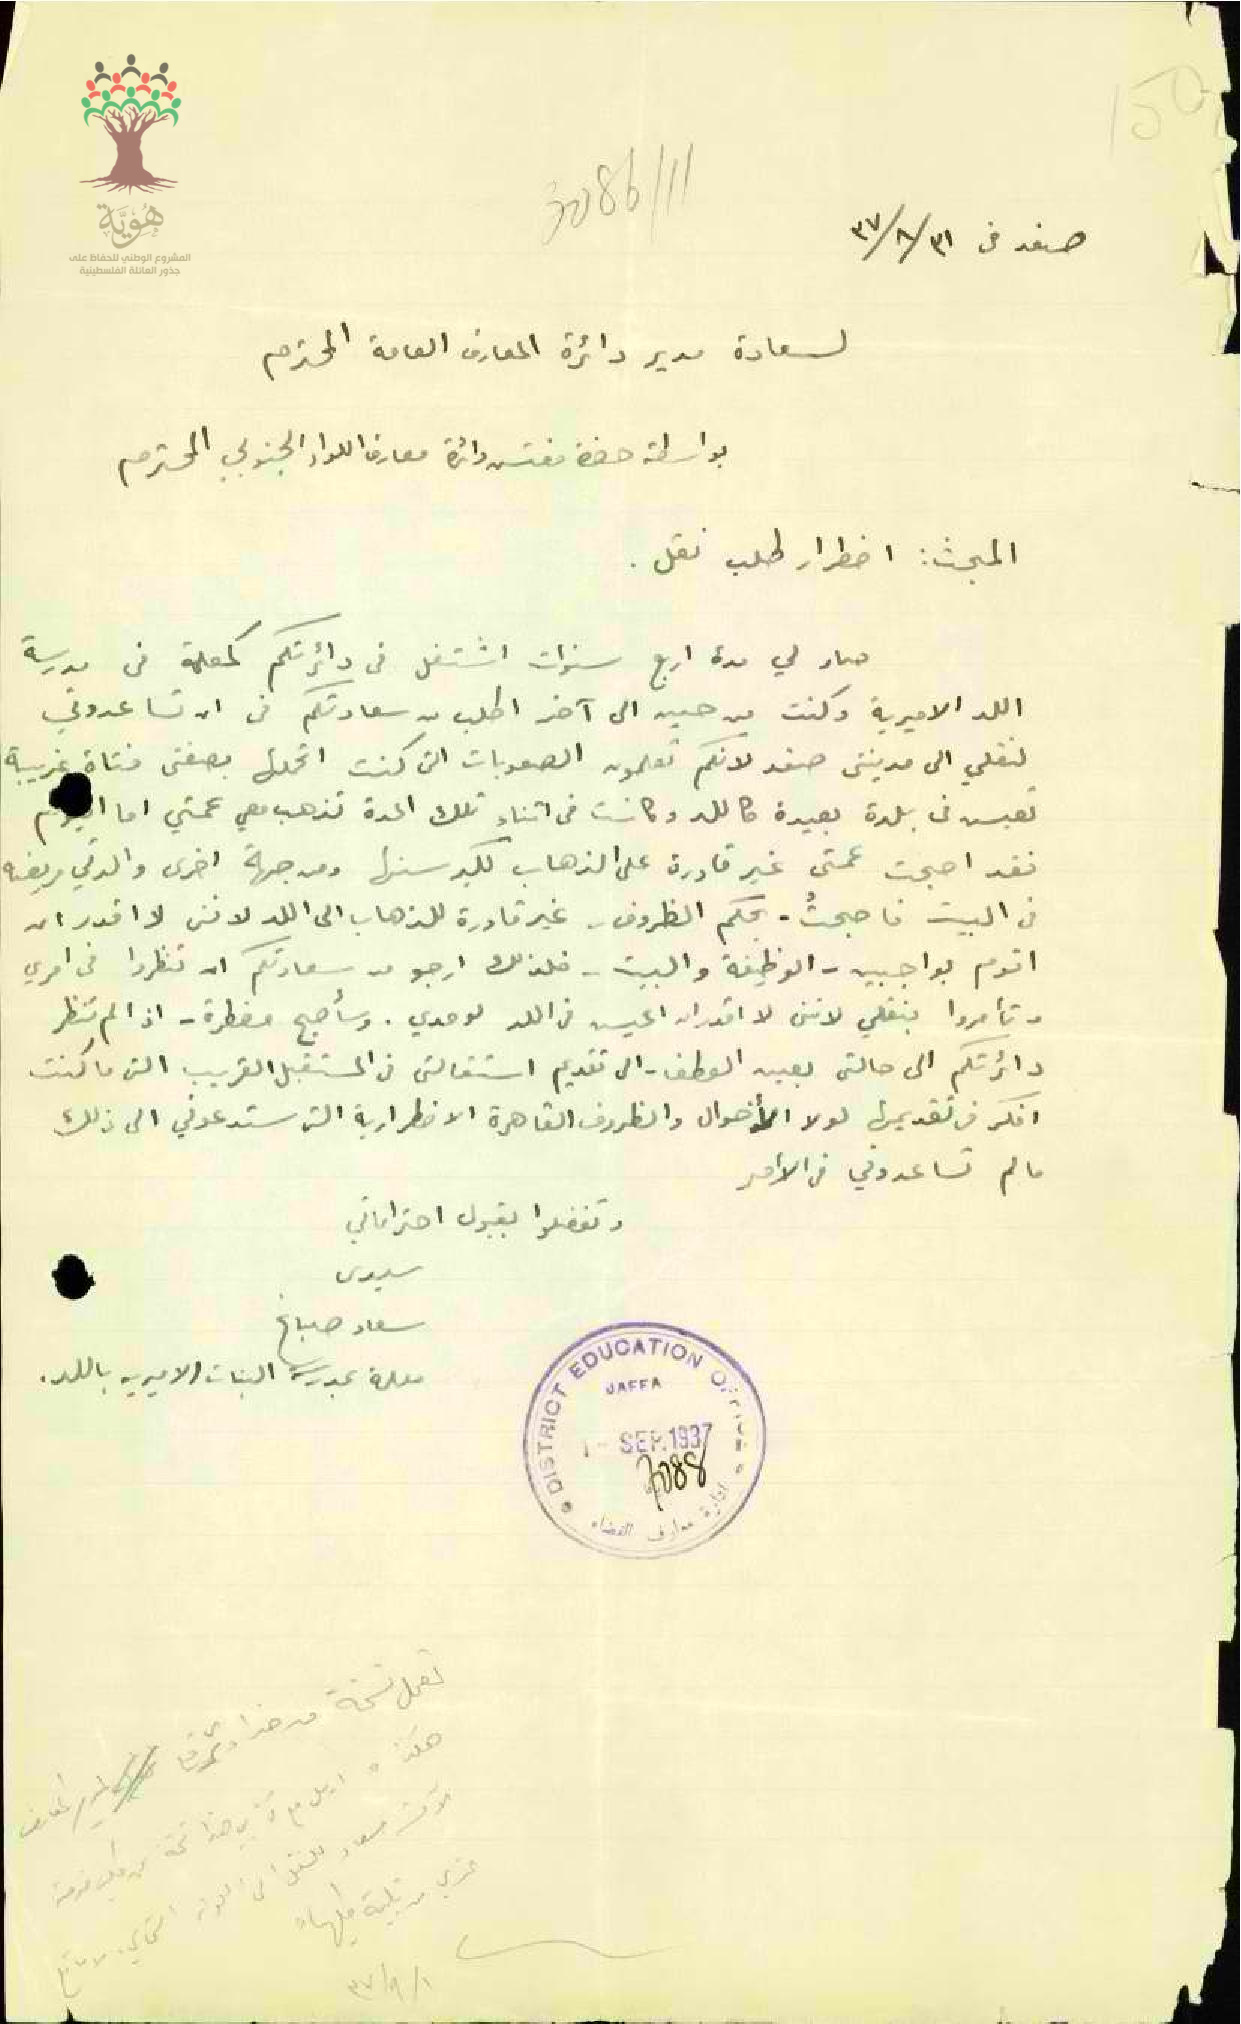 هُوِيَّة
المشروع الوطني للحفاظ على
جذور العائلة الفلسطينية
150
3086/11
صفد في ٣١/٨/٣٧
لسعادة مدير دائرة المعارف العامة المحترم
بواسطة حضرة مفتش دائرة معارف اللواء الجنوبي المحترم
المبحث: اضطرار لطلب نقل .
صار لي مدة اربع سنوات اشتغل في دائرتكم كمعلمة في مدرسة
اللد الاميرية وكنت من حين الى آخر اطلب من سعادتكم في ان تساعدوني
لنقلي الى مدينتي صفد لانكم تعلمون الصعوبات التي كنت اتحملها بصفتي فتاة غريبة
تعيش في بلدة بعيدة كاللد وكانت في اثناء تلك المدة تذهب معي عمتي اما اليوم
فقد اصبحت عمتي غير قادرة على الذهاب لكبر سنها ومن جهة اخرى والدتي مريضة
في البيت فاصبحتُ - بحكم الظروف - غير قادرة للذهاب الى اللد لانني لا اقدر ان
اقوم بواجبين - الوظيفة والبيت - فلذلك ارجو من سعادتكم ان تنظروا في امري
وتأمروا بنقلي لانني لا اقدر ان اعيش في اللد لوحدي . وسأصبح مضطرة - اذا لم تنظر
دائرتكم الى حالتي بعين العطف - الى تقديم استقالتي في المستقبل القريب التي ما كنت
افكر في تقديمها لولا الأحوال والظروف القاهرة الاضطرارية التي ستدعوني الى ذلك
ما لم تساعدوني في الامر
وتفضلوا بقبول احتراماتي
سيدي
سعاد صباغ
معلمة بمدرسة البنات الاميرية باللد .
DISTRICT EDUCATION OFFICE
JAFFA
1 - SEP. 1937
3088
ادارة معارف القضاء
تعمل نسخة من هذا
١/٩/٣٧